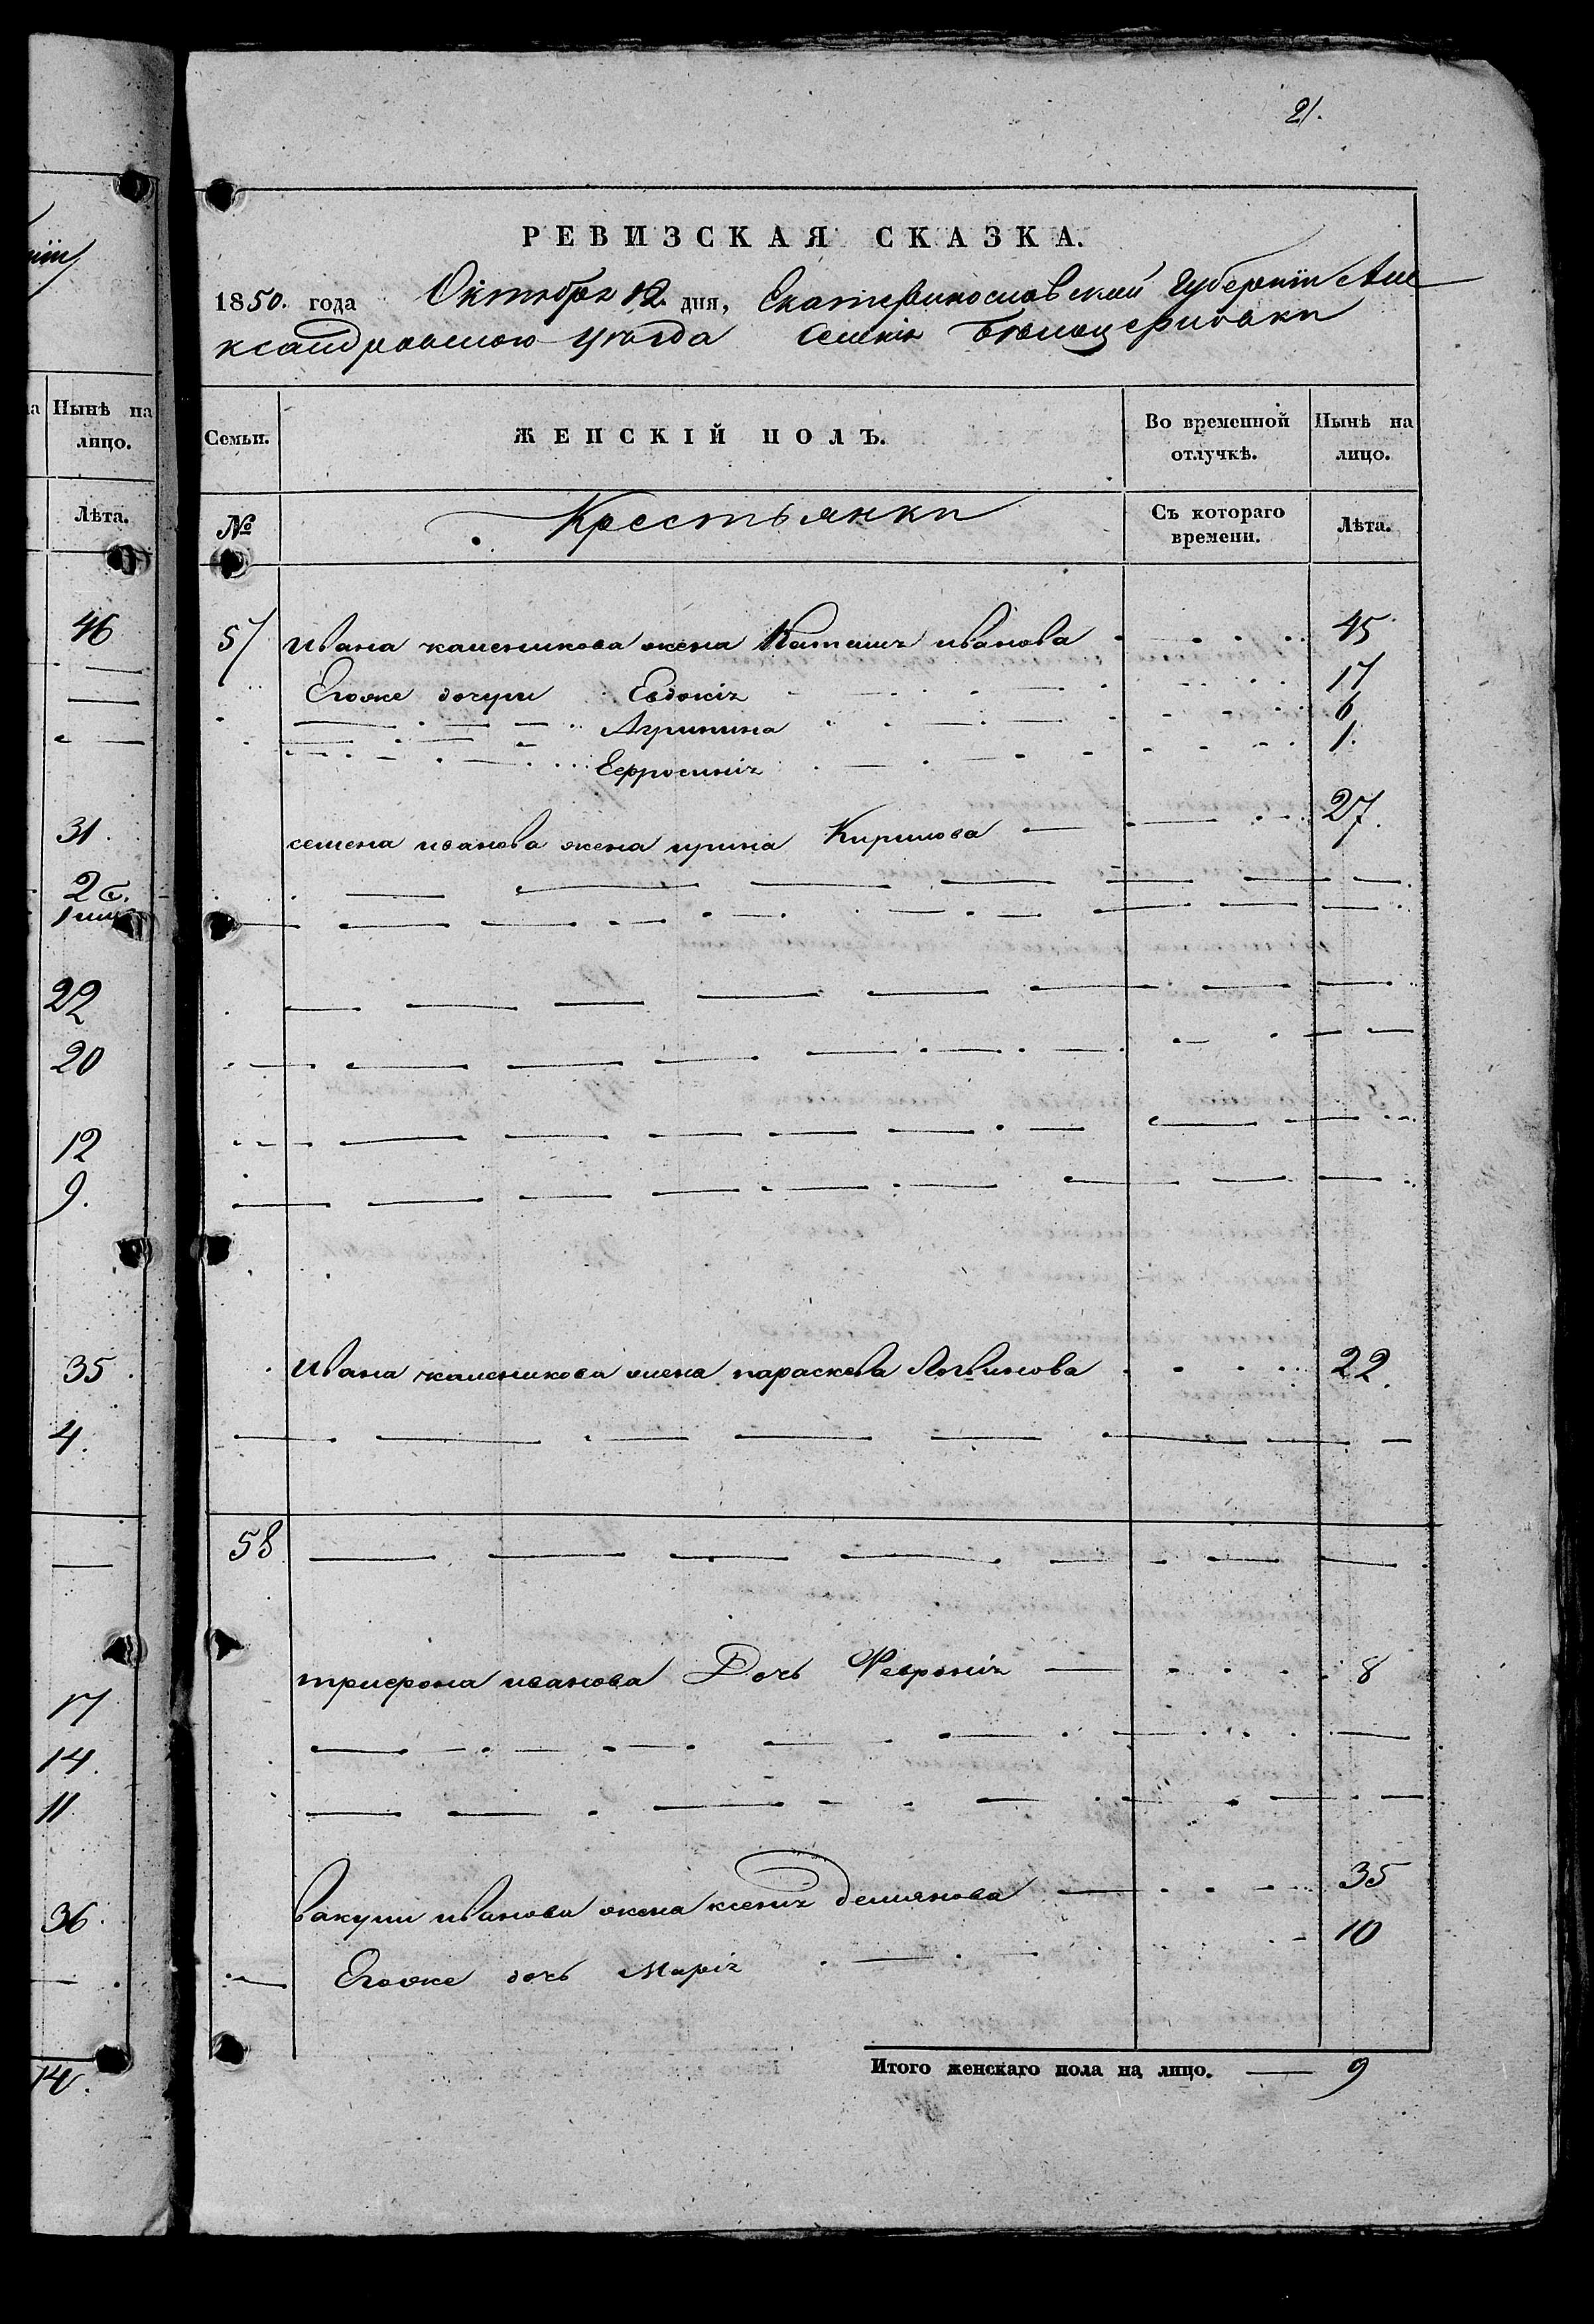 21.
РЕВИЗСКАЯ СКАЗКА.
1850. года Октября 12. дня, Екатеринославской Губернiи Але
ксандровскаго уѣзда Селенiя Бѣлоцерковки
Нынѣ на
лицо.
Лѣта.
46
31.
26.
22
20
12
9.
35.
4.
17
14.
11.
36.
14.
Семьи.
ЖЕНСКIЙ ПОЛЪ.
Во временной
отлучкѣ.
Нынѣ на
лицо.
№
Крестьянки
Съ котораго
времени.
Лѣта.
57 Ивана жена иванова 45
Егоже дочери Евдокiя 17
Агрипина 6
Ефросинiя 1.
семена иванова жена ирина Кирилова 27.
Ивана жена параскева Логвинова 22.
58
трифона иванова Дочь Феврониiя 8
вакулы иванова жена ксенiя демянова 35
Егоже дочь Марiя 10
Итого женскаго пола на лицо. 9